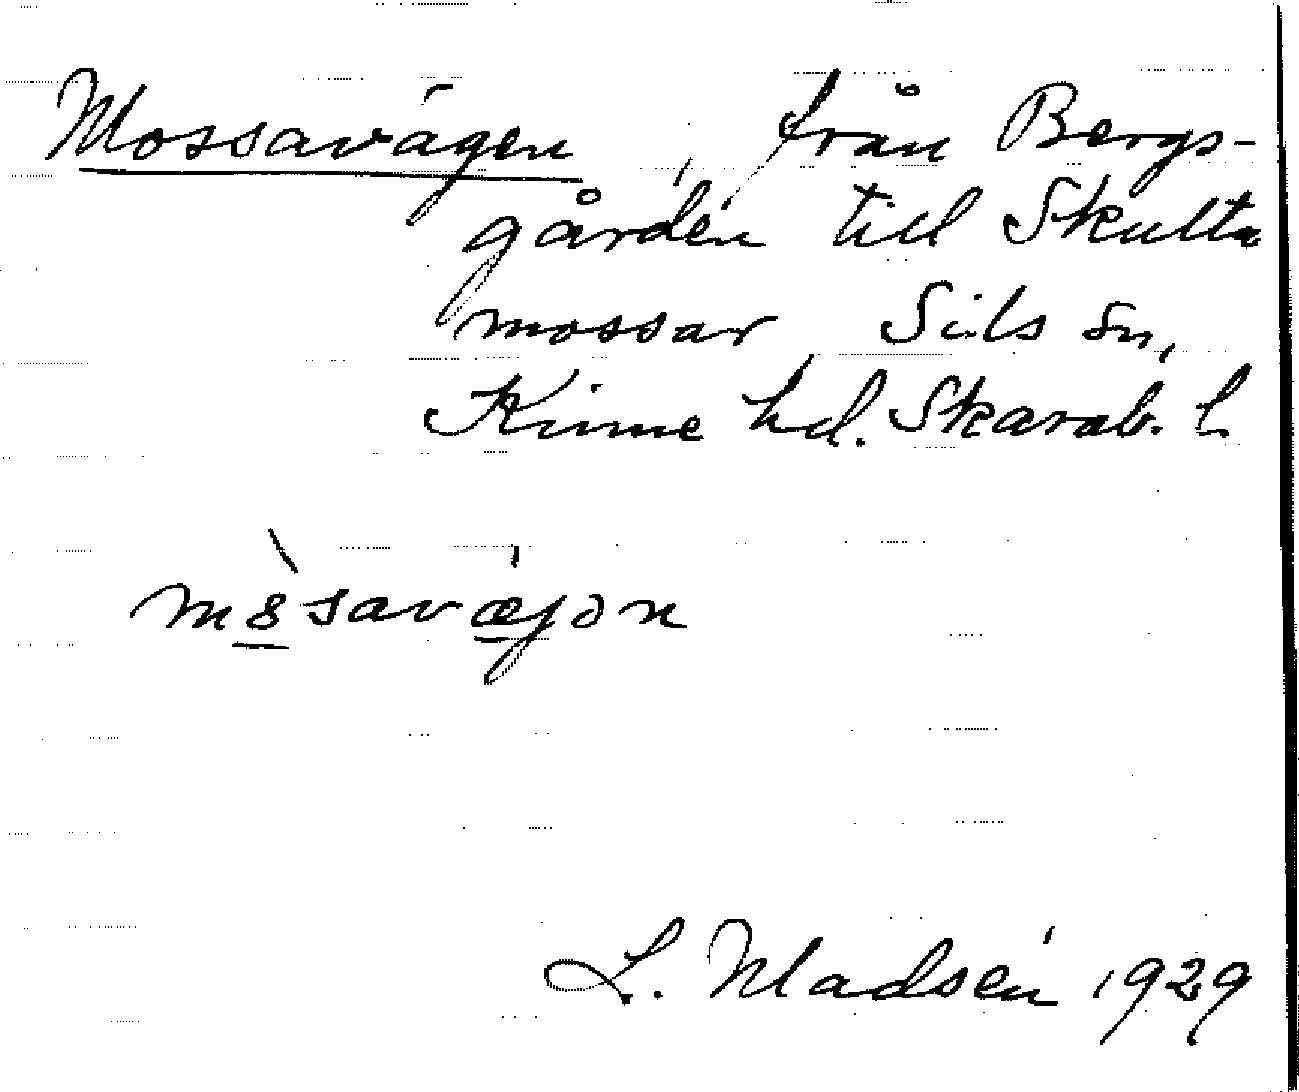 Mossavägen, från Bergs-
gården till Skulta
mossar Sils sn,
Kinne hd. Skarab. l.
mo̱savæ̱jən
L. Madsén 1929